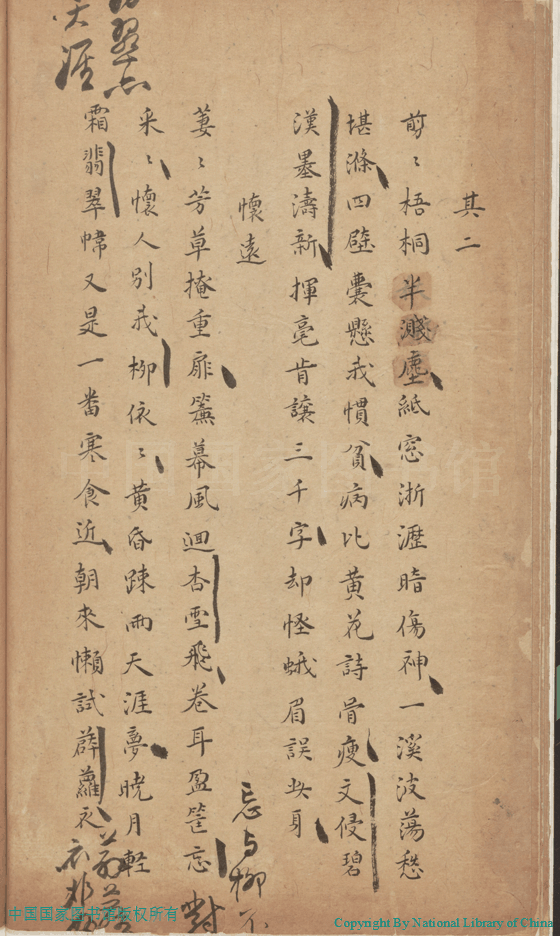 其二
剪〻梧桐半濺塵紙窓浙瀝暗傷神一溪波蕩愁
堪滌四壁囊懸我慣貧病比黄花詩骨瘦文侵碧
漢墨濤新揮毫肯讓三千字却怪蛾眉誤此身
懷遠
萋〻芳草掩重扉簾幕風迴杏雪飛卷耳盈筐忘
采〻懷人别我柳依〻黄昏踈雨天涯夢曉月輕
霜翡翠幃又是一番寒食近朝來懶試薜蘿衣
忘与柳
對
翠
天涯
中国国家图书馆
中国国家图书馆版权所有
Copyright By National Library of China